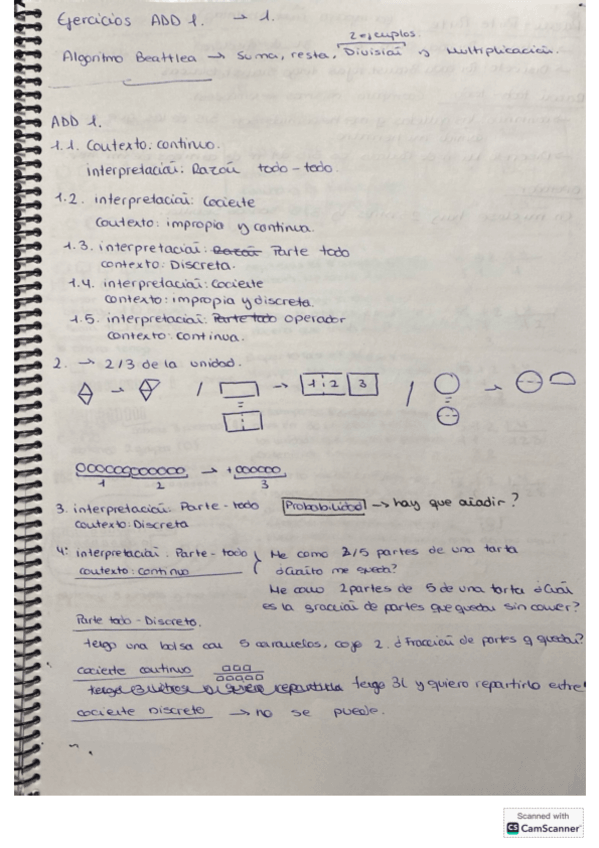 Ejercicios ADD 1. → 1.
2 ejemplos.
Algoritmo Beattlea → Suma, resta, División y Multiplicación.
ADD 1.
1.1. Contexto: continuo.
interpretación: Razón todo-todo.
1.2. interpretación: Cociente
Contexto: impropia y continua.
1.3. interpretación: Razón Parte todo
contexto: Discreta.
1.4. interpretación: Cociente
contexto: impropia y discreta.
1.5. interpretación: Parte todo operador
contexto: continua.
2. → 2/3 de la unidad.
1 2 3
1 2 3
3. interpretación: Parte-todo Probabilidad → hay que añadir?
contexto: Discreta
4. interpretación: Parte-todo Me como 2/5 partes de una tarta
contexto: continuo ¿Cuánto me queda?
Me como 2 partes de 5 de una tarta ¿Cuál
es la fracción de partes que quedan sin comer?
Parte todo - Discreto.
tengo una bolsa con 5 caramelos, cojo 2. ¿Fracción de partes q quedan?
cociente continuo
tengo 3 litros quiero repartirla tengo 3L y quiero repartirlo entre
cociente Discreto → no se puede.
Scanned with
CS CamScanner